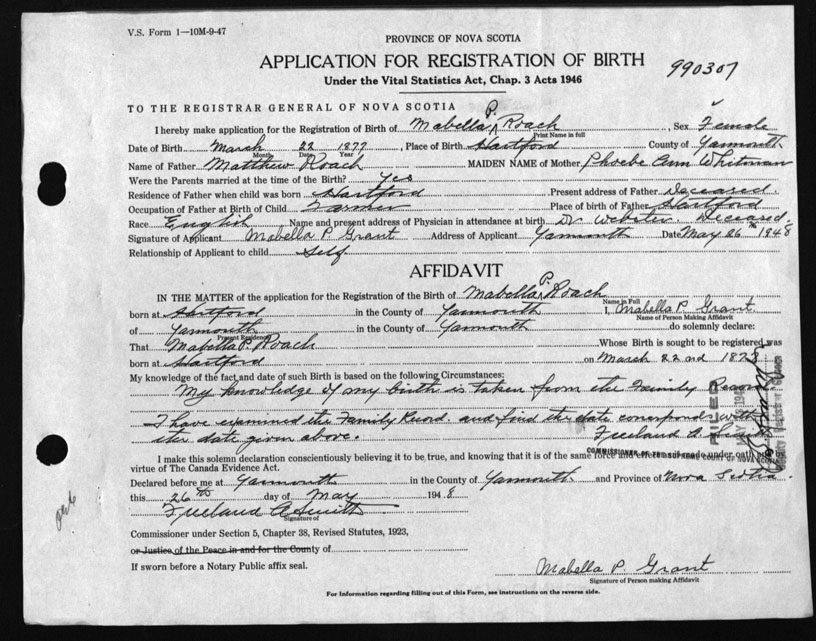 V.S. Form 1—10M-9-47
PROVINCE OF NOVA SCOTIA
APPLICATION FOR REGISTRATION OF BIRTH
990307
Under the Vital Statistics Act, Chap. 3 Acts 1946
TO THE REGISTRAR GENERAL OF NOVA SCOTIA
I hereby make application for the Registration of Birth of Mabella P. Roach, Sex Female
Print Name in full
Date of Birth March 22 1877, Place of Birth Hartford County of Yarmouth
Month Day Year
Name of Father Matthew Roach MAIDEN NAME of Mother Phoebe Ann Whitman
Were the Parents married at the time of the Birth? Yes
Residence of Father when child was born Hartford Present address of Father Deceased.
Occupation of Father at Birth of Child Farmer Place of birth of Father Hartford
Race English Name and present address of Physician in attendance at birth Dr Webster Deceased.
Signature of Applicant Mabella P. Grant Address of Applicant Yarmouth Date May 26th 1948
Relationship of Applicant to child Self
AFFIDAVIT
IN THE MATTER of the application for the Registration of the Birth of Mabella P. Roach
Name in Full
born at Hartford in the County of Yarmouth I, Mabella P. Grant
Name of Person Making Affidavit
of Yarmouth in the County of Yarmouth do solemnly declare:
Present Residence
That Mabella P. Roach Whose Birth is sought to be registered was
born at Hartford on March 22nd
My knowledge of the fact and date of such Birth is based on the following Circumstances:
My knowledge of my birth is taken from the Family Record.
I have examined the Family Record and find the date corresponds with
the date given above. Freeland A. Smith
COMMISSIONER OF THE SUPREME COURT OF NOVA SCOTIA
FILED
I make this solemn declaration conscientiously believing it to be true, and knowing that it is of the same force and effect as if made under oath by
virtue of The Canada Evidence Act.
Declared before me at Yarmouth in the County of Yarmouth and Province of Nova Scotia.
this 26th day of May 1948
Freeland A Smith
Signature of
Commissioner under Section 5, Chapter 38, Revised Statutes, 1923,
or Justices of the Peace in and for the County of
If sworn before a Notary Public affix seal.
Mabella P. Grant
Signature of Person making Affidavit
For Information regarding filling out of this Form, see instructions on the reverse side.